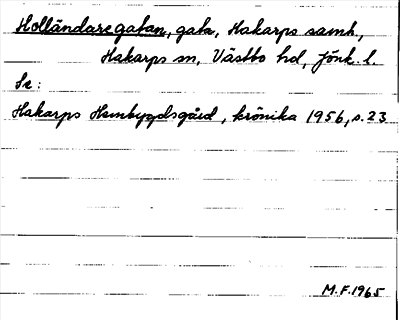 Holländaregatan, gata, Hakarps samh,
Hakarps sn, Västbo hd, Jönk. l.
Se:
Hakarps Hembygdsgård, krönika 1956, s. 23
M.F. 1965